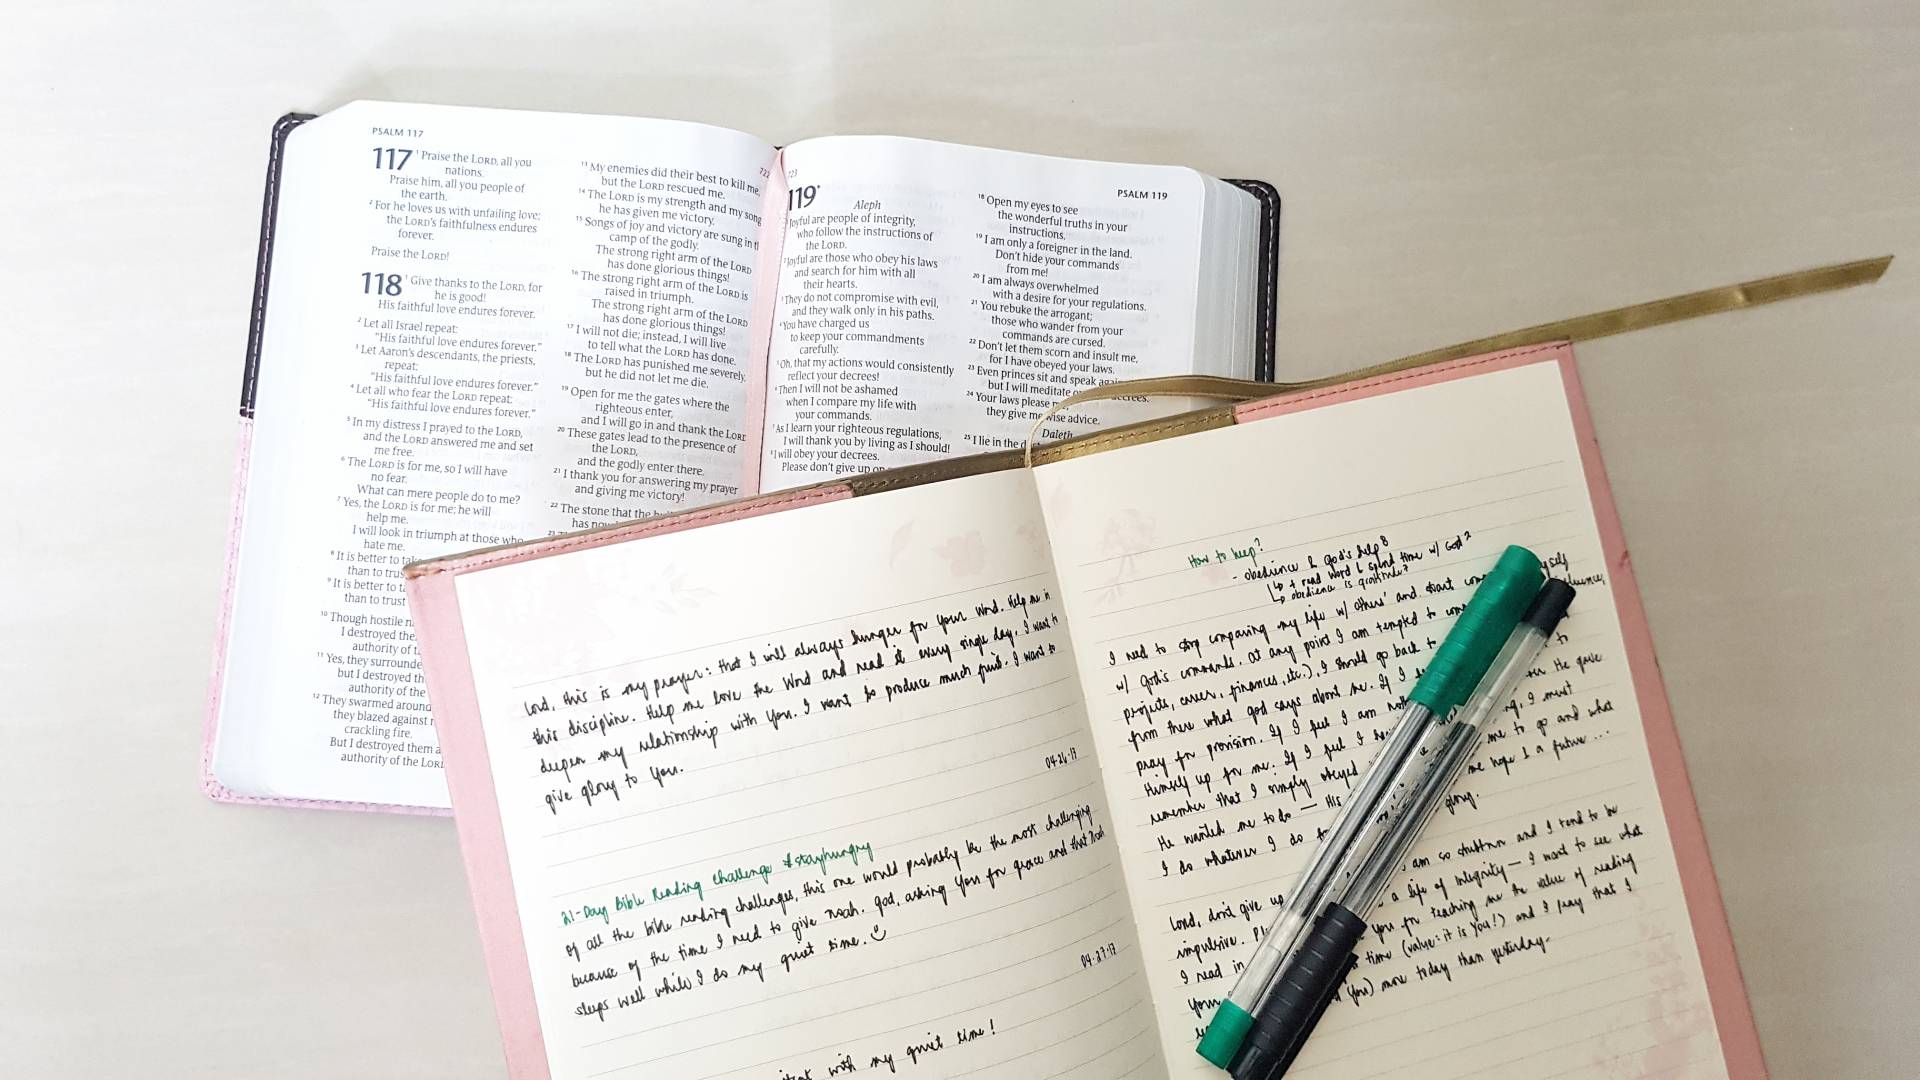 PSALM 117
117 1 Praise the LORD, all you
nations.
Praise him, all you people of
the earth.
2 For he loves us with unfailing love;
the LORD's faithfulness endures
forever.
Praise the LORD!
118 1 Give thanks to the LORD, for
he is good!
His faithful love endures forever.
2 Let all Israel repeat:
"His faithful love endures forever."
3 Let Aaron's descendants, the priests,
repeat:
"His faithful love endures forever."
4 Let all who fear the LORD repeat:
"His faithful love endures forever."
5 In my distress I prayed to the LORD,
and the LORD answered me and set
me free.
6 The LORD is for me, so I will have
no fear.
What can mere people do to me?
7 Yes, the LORD is for me; he will
help me.
I will look in triumph at those who
hate me.
8 It is better to
than to
9 It is better to
than to trust
10 Though hostile
I destroyed
authority of
11 Yes, they
but I destroyed
authority of the
12 They swarmed around
they blazed against
crackling fire.
But I destroyed them
authority of the LORD
722
13 My enemies did their best to kill me,
but the LORD rescued me.
14 The LORD is my strength and my song
he has given me victory.
15 Songs of joy and victory are sung in
camp of the godly.
The strong right arm of the LORD
has done glorious things!
16 The strong right arm of the LORD is
raised in triumph.
The strong right arm of the LORD
has done glorious things!
17 I will not die; instead, I will live
to tell what the LORD has done.
18 The LORD has punished me severely,
but he did not let me die.
19 Open for me the gates where the
righteous enter,
and I will go in and thank the LORD
20 These gates lead to the presence of
the LORD,
and the godly enter there.
21 I thank you for answering my prayer
and giving me victory!
22 The stone that the
has
23
723
PSALM 119
119*
Aleph
Joyful are people of integrity,
who follow the instructions of
the LORD.
2 Joyful are those who obey his laws
and search for him with all
their hearts.
3 They do not compromise with evil,
and they walk only in his paths.
4 You have charged us
to keep your commandments
carefully.
5 Oh, that my actions would consistently
reflect your decrees!
6 Then I will not be ashamed
when I compare my life with
your commands.
7 As I learn your righteous regulations,
I will thank you by living as I should!
8 I will obey your decrees.
Please don't give up on
18 Open my eyes to see
the wonderful truths in your
instructions.
19 I am only a foreigner in the land.
Don't hide your commands
from me!
20 I am always overwhelmed
with a desire for your regulations.
21 You rebuke the arrogant;
those who wander from your
commands are cursed.
22 Don't let them scorn and insult me,
for I have obeyed your laws.
23 Even princes sit and speak
but I will meditate decrees.
24 Your laws please
they give me wise advice.
Daleth
25 I lie in the
Lord, this is my prayer: that I will always hunger for Your Word. Help me in
this discipline. Help me love the Word and read it every single day. I want to
deepen my relationship with You. I want to produce much fruit. I want to
give glory to You.
04.26.17
21-Day Bible Reading Challenge #stayhungry
Of all the bible reading challenges, this one would probably be the most challenging
because of the time I need to give Noah. God, asking You for grace and that Noah
sleeps well while I do my quiet time.
04.27.17
with my quiet time!
How to keep?
- obedience & God's help
↳ read word & spend time w/ God?
↳ obedience is gratitude?
I need to stop comparing my life w/ others' and start
w/ God's commands. At any point I am tempted to
projects, career, finances, etc.), I should go back to
from there what God says about me. If I
pray for provision. If I feel I am He gave
Himself up for me. If I feel I I must
remember that I simply obeyed me to go and what
He wanted me to do — His me hope & a future ...
I do whatever I do glory.
Lord, don't give up am so stubborn and I tend to be
impulsive. a life of integrity — I want to see what
I read in you for teaching me the value of reading
Your time (value: it is You!) and I pray that I
(You) more today than yesterday.